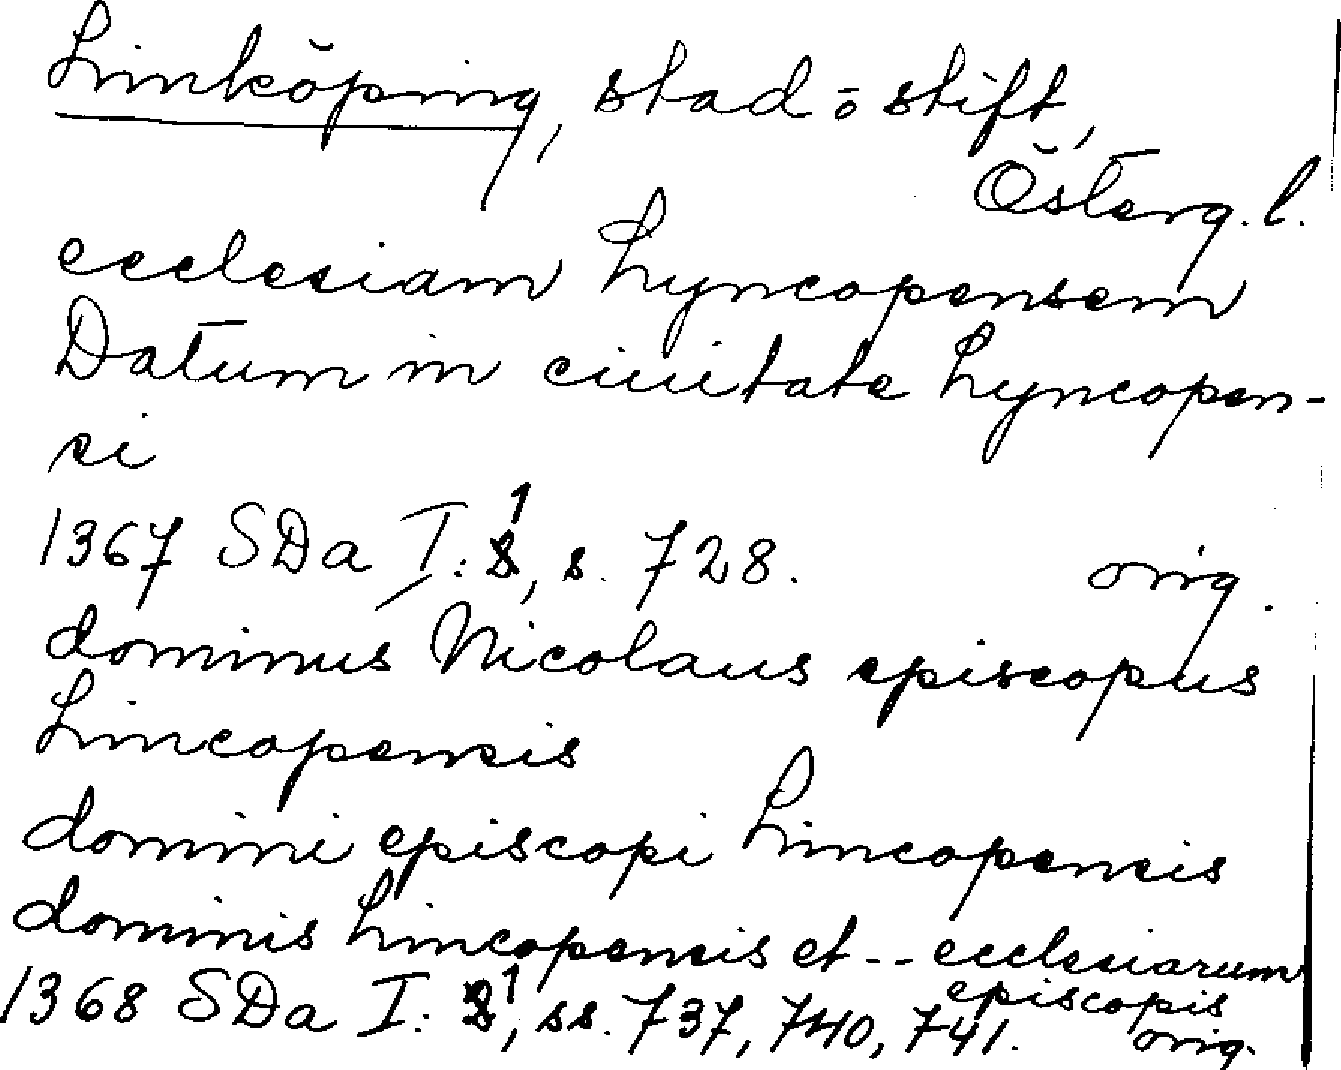 Linköping, stad ō stift,
Österg. l.
ecclesiam Lyncopensem
Datum in ciuitate Lyncopen-
si
1367 SDa I: 1, s. 728. orig.
dominus Nicolaus episcopus
Lincopensis
domini episcopi Lincopensis
dominis Lincopensis et -- ecclesiarum
episcopis
1368 SDa I: 1, ss. 737, 740, 741. orig.